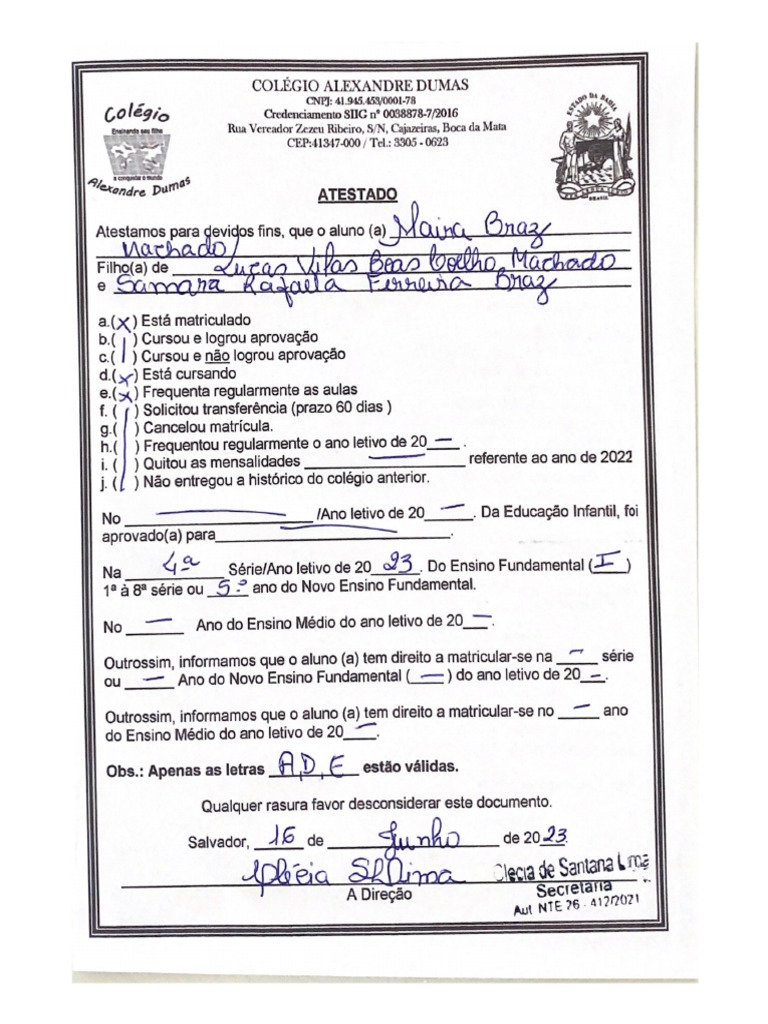 COLÉGIO ALEXANDRE DUMAS
CNPJ: 41.945.453/0001-78
Credenciamento SIIG nº 0038878-7/2016
Rua Vereador Zezeu Ribeiro, S/N, Cajazeiras, Boca da Mata
CEP:41347-000 / Tel.: 3305 - 0623
Colégio
Ensinando seu filho
a conquistar o mundo
Alexandre Dumas
ESTADO DA BAHIA
BRASIL
ATESTADO
Atestamos para devidos fins, que o aluno (a) Maira Braz
Machado
Filho(a) de Lucas Vilas Boas Coelho Machado
e Samara Rafaela Ferreira Braz
a.(x) Está matriculado
b.( ) Cursou e logrou aprovação
c.( ) Cursou e não logrou aprovação
d.(x) Está cursando
e.(x) Frequenta regularmente as aulas
f. ( ) Solicitou transferência (prazo 60 dias )
g.( ) Cancelou matrícula.
h.( ) Frequentou regularmente o ano letivo de 20 — .
i. ( ) Quitou as mensalidades — referente ao ano de 2022
j. ( ) Não entregou a histórico do colégio anterior.
No — /Ano letivo de 20 — . Da Educação Infantil, foi
aprovado(a) para — .
Na 4ª Série/Ano letivo de 2023. Do Ensino Fundamental (I)
1ª à 8ª série ou 5º ano do Novo Ensino Fundamental.
No — Ano do Ensino Médio do ano letivo de 20 — .
Outrossim, informamos que o aluno (a) tem direito a matricular-se na — série
ou — Ano do Novo Ensino Fundamental ( — ) do ano letivo de 20 — .
Outrossim, informamos que o aluno (a) tem direito a matricular-se no — ano
do Ensino Médio do ano letivo de 20 — .
Obs.: Apenas as letras A, D, E estão válidas.
Qualquer rasura favor desconsiderar este documento.
Salvador, 16 de Junho de 2023.
A Direção
Clecia de Santana Lima
Secretária
Aut NTE 26 - 412/2021